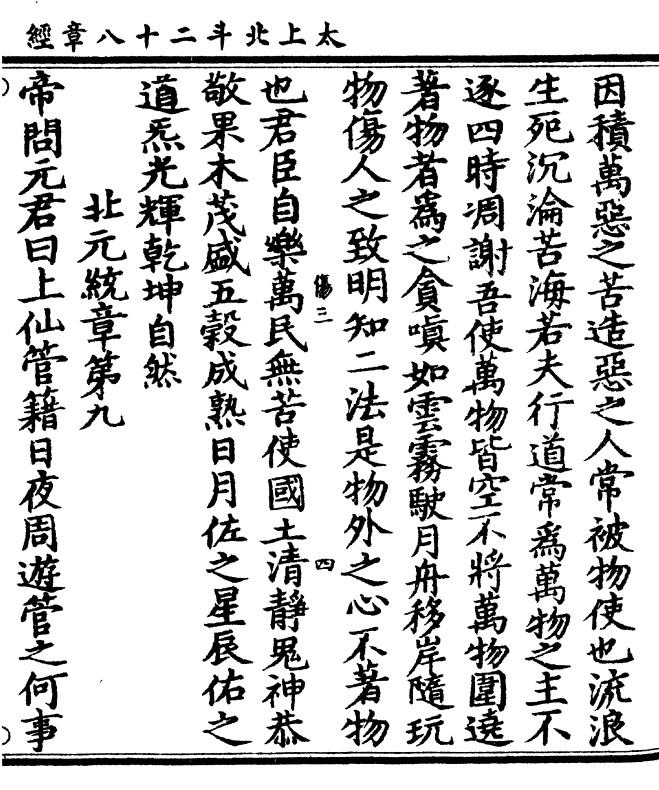 太上北斗二十八章經
因積萬惡之苦造惡之人常被物使也流浪
生死沉淪苦海若夫行道常爲萬物之主不
逐四時凋謝吾使萬物皆空不將萬物圍遶
著物者爲之貪嗔如雲霧駛月舟移岸隨玩
物傷人之致明知二法是物外之心不著物
傷三
四
也君臣自樂萬民無苦使國土清靜鬼神恭
敬果木茂盛五穀成熟日月佐之星辰佑之
道炁光輝乾坤自然
北元統章第九
帝問元君曰上仙管籍日夜周遊管之何事